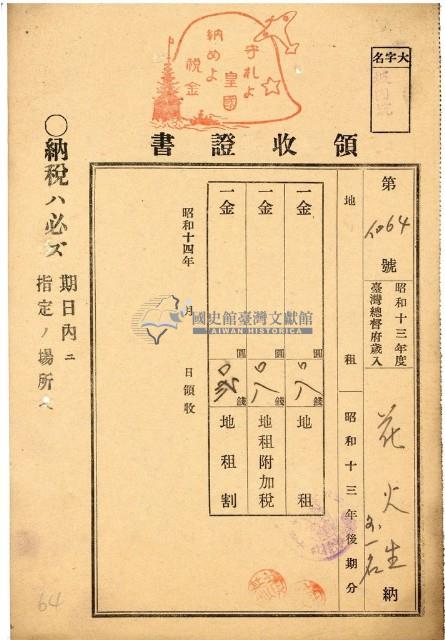 守れよ
皇國
納めよ
税金
大字名
領收證書
第 64 號
昭和十三年度
臺灣總督府歲入
花火生 外一名 納
地租 昭和十三年後期分
一金 圓 〇八 錢 地租
一金 圓 〇八 錢 地租附加稅
一金 圓 錢 地租割
昭和十四年 月 日領收
〇納稅ハ必ズ
期日內ニ
指定ノ場所へ
國史館臺灣文獻館
TAIWAN HISTORICA
64